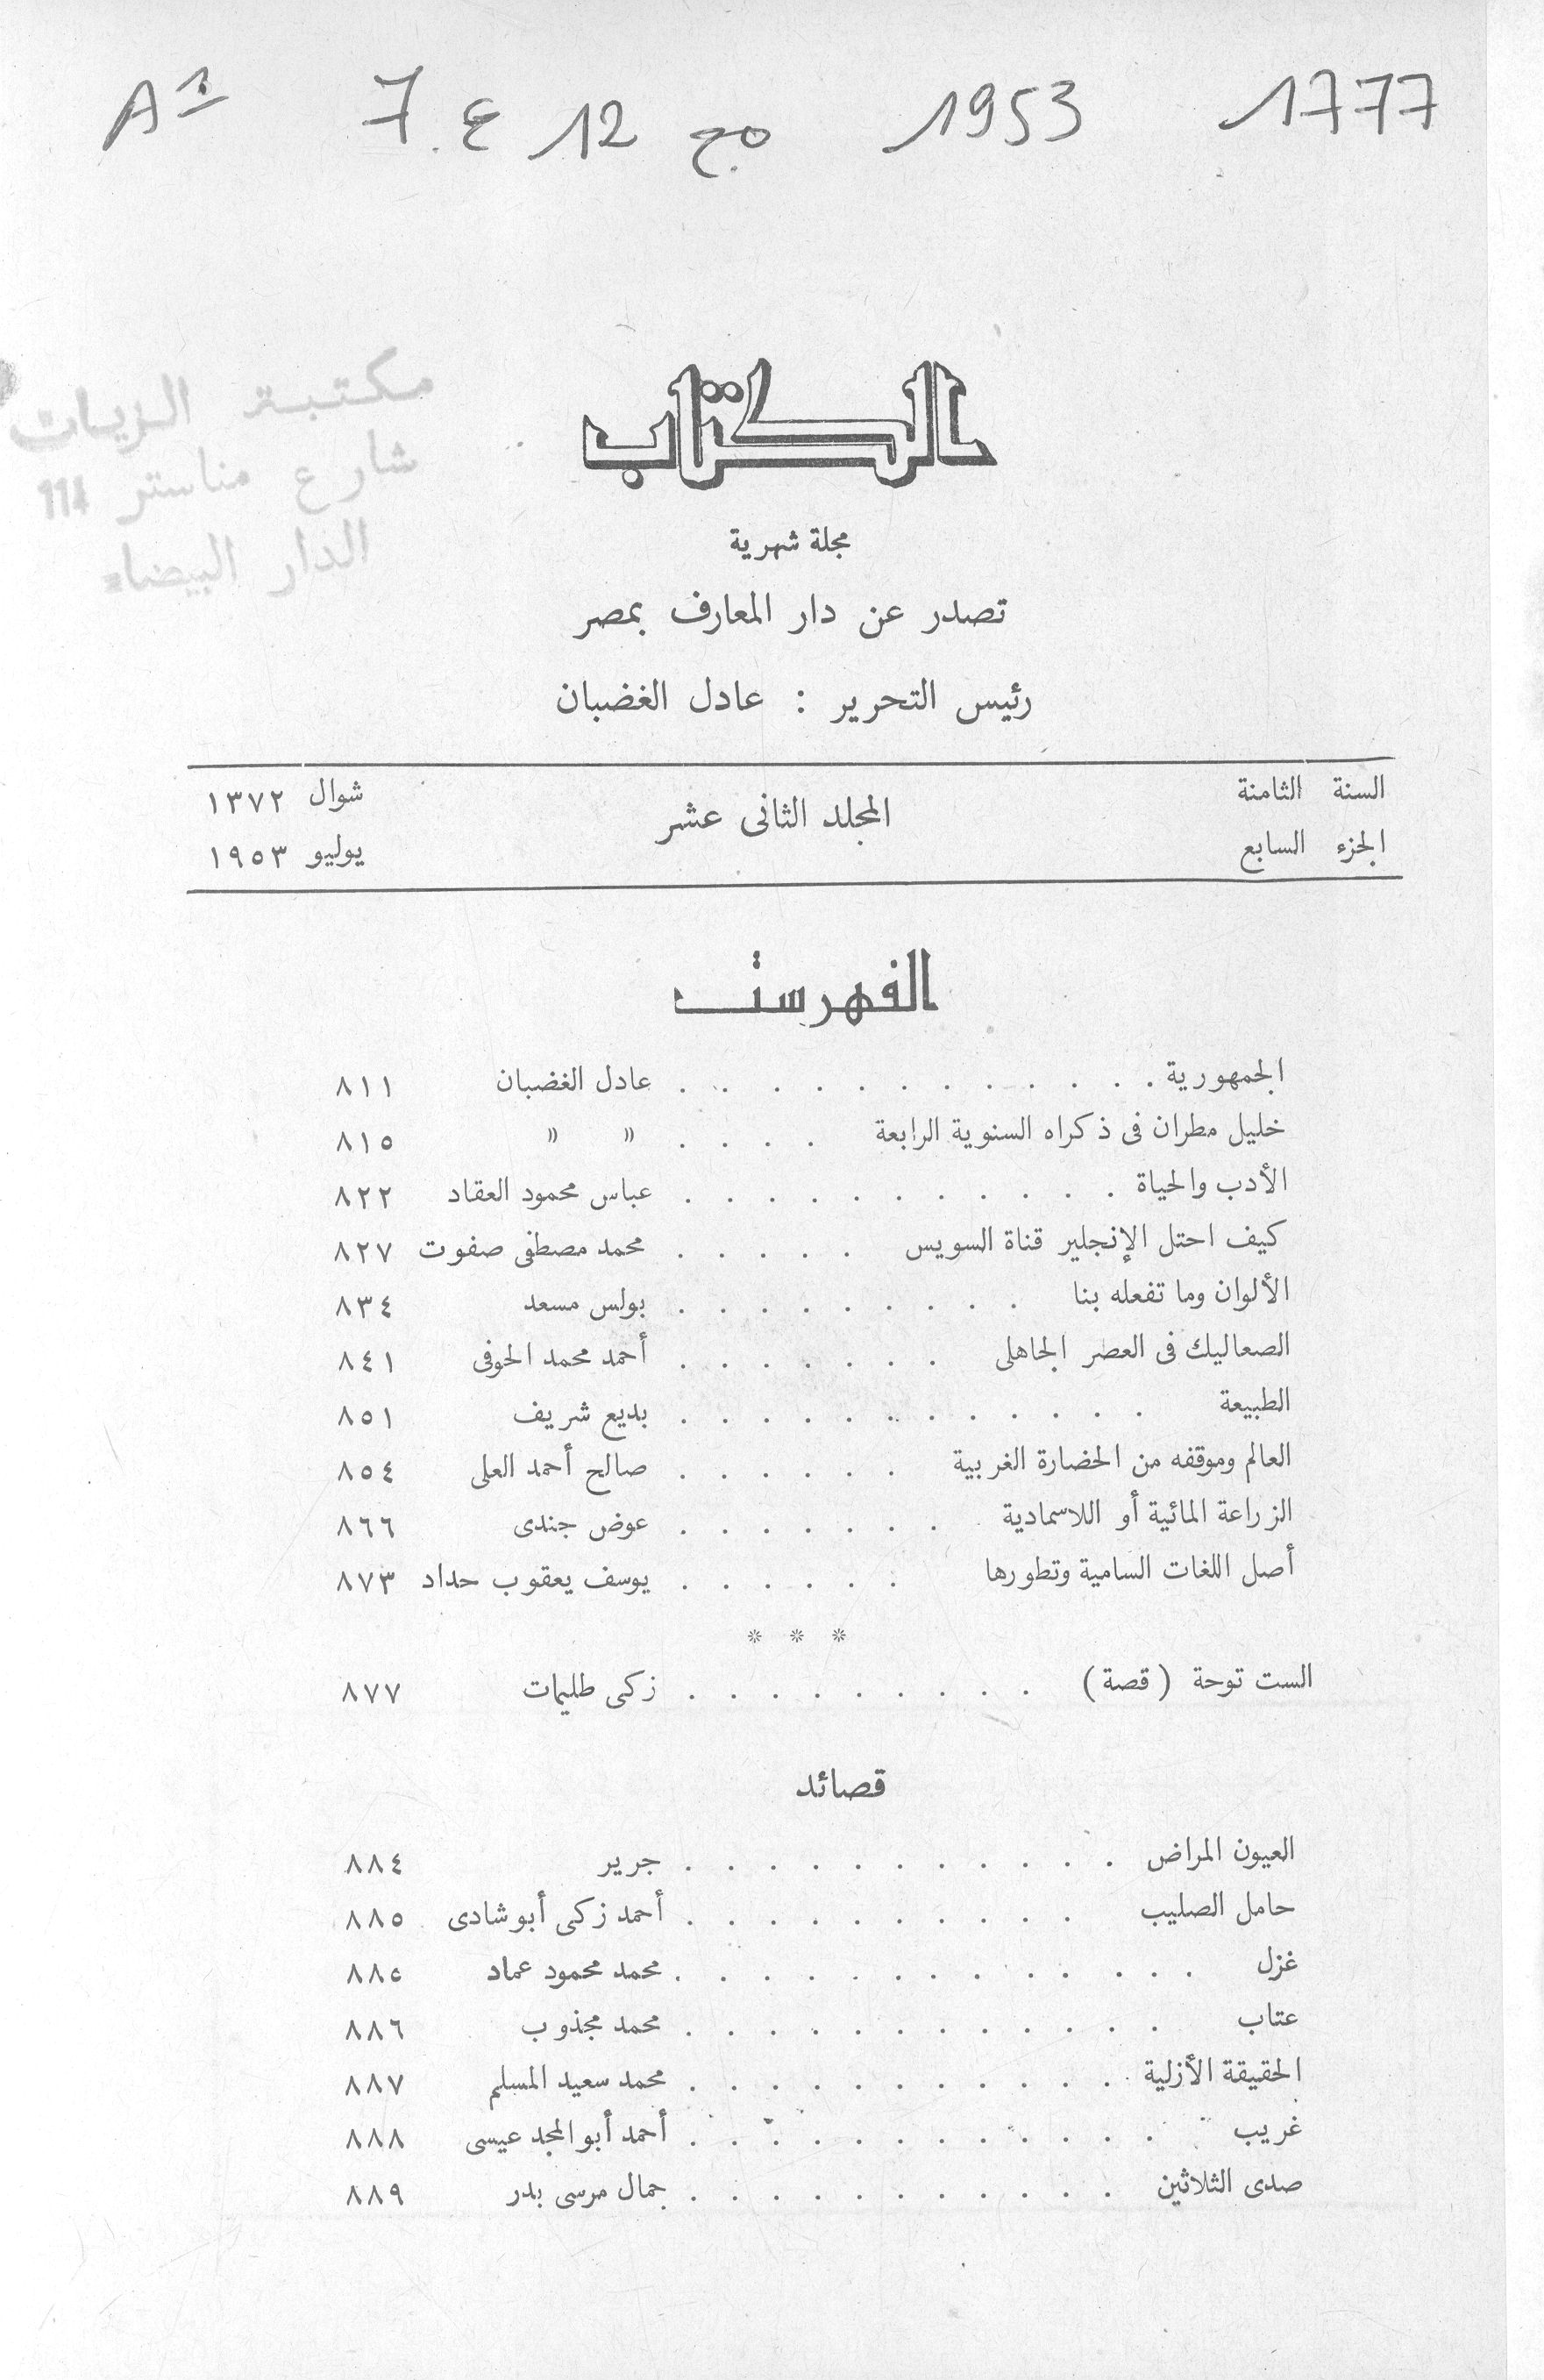 1777 1953 مج 12 ع 7. A1
مكتبة الزيات
شارع مناستر 114
الدار البيضاء
الكتاب
مجلة شهرية
تصدر عن دار المعارف بمصر
رئيس التحرير : عادل الغضبان
السنة الثامنة المجلد الثانى عشر شوال ١٣٧٢
الجزء السابع يوليو ١٩٥٣
الفهرست
الجمهورية . . . . . . . . . . . . عادل الغضبان ٨١١
خليل مطران فى ذكراه السنوية الرابعة . . . . » » ٨١٥
الأدب والحياة . . . . . . . . . . . عباس محمود العقاد ٨٢٢
كيف احتل الإنجليز قناة السويس . . . . . محمد مصطفى صفوت ٨٢٧
الألوان وما تفعله بنا . . . . . . . . . بولس مسعد ٨٣٤
الصعاليك فى العصر الجاهلى . . . . . . . أحمد محمد الحوفى ٨٤١
الطبيعة . . . . . . . . . . . . بديع شريف ٨٥١
العالم وموقفه من الحضارة الغربية . . . . . . صالح أحمد العلى ٨٥٤
الزراعة المائية أو اللاسمادية . . . . . . . عوض جندى ٨٦٦
أصل اللغات السامية وتطورها . . . . . . يوسف يعقوب حداد ٨٧٣
* * *
الست توحة ( قصة ) . . . . . . . . . زكى طليمات ٨٧٧
قصائد
العيون المراض . . . . . . . . . . . جرير ٨٨٤
حامل الصليب . . . . . . . . . . أحمد زكى أبو شادى ٨٨٥
غزل . . . . . . . . . . . . . محمد محمود عماد ٨٨٥
عتاب . . . . . . . . . . . . محمد مجذوب ٨٨٦
الحقيقة الأزلية . . . . . . . . . . . محمد سعيد المسلم ٨٨٧
غريب . . . . . . . . . . . . أحمد أبو المجد عيسى ٨٨٨
صدى الثلاثين . . . . . . . . . . . جمال مرسى بدر ٨٨٩